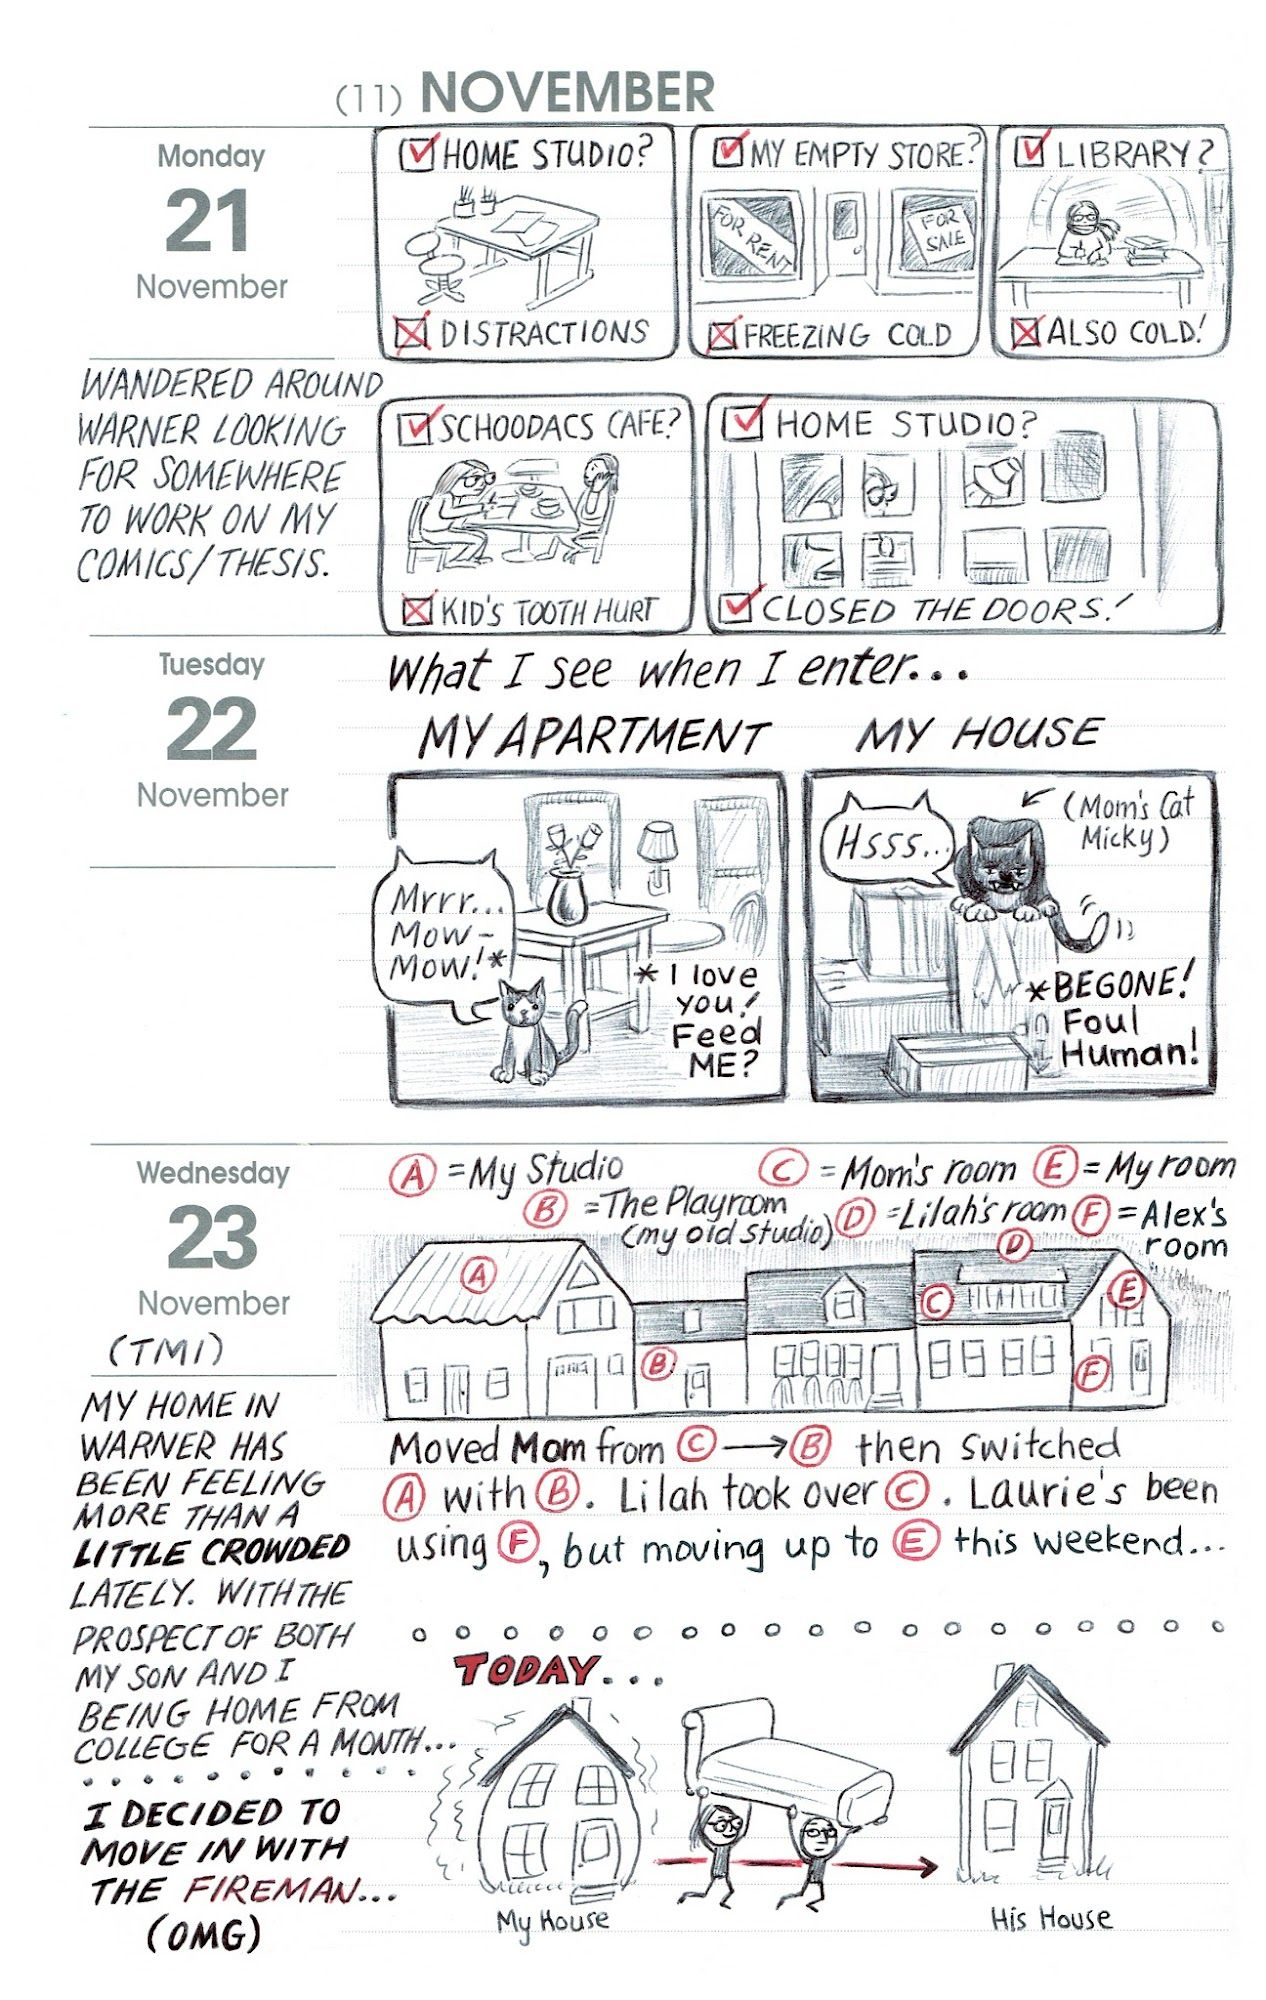 (11) NOVEMBER
Monday
21
November
WANDERED AROUND
WARNER LOOKING
FOR SOMEWHERE
TO WORK ON MY
COMICS/THESIS.
HOME STUDIO?
DISTRACTIONS
MY EMPTY STORE?
FOR RENT
FOR
SALE
FREEZING COLD
LIBRARY?
ALSO COLD!
SCHOODACS CAFE?
KID'S TOOTH HURT
HOME STUDIO?
CLOSED THE DOORS!
Tuesday
22
November
What I see when I enter...
MY APARTMENT
Mrrr...
Mow-
Mow!*
* I love
you!
Feed
ME?
MY HOUSE
Hsss...
(Mom's Cat
Micky)
*BEGONE!
Foul
Human!
Wednesday
23
November
(TMI)
MY HOME IN
WARNER HAS
BEEN FEELING
MORE THAN A
LITTLE CROWDED
LATELY. WITH THE
PROSPECT OF BOTH
MY SON AND I
BEING HOME FROM
COLLEGE FOR A MONTH...
I DECIDED TO
MOVE IN WITH
THE FIREMAN...
(OMG)
A =My Studio
B =The Playroom
(my old studio)
C =Mom's room
D =Lilah's room
E =My room
F =Alex's
room
A
B
C
D
E
F
Moved Mom from C → B then switched
A with B. Lilah took over C. Laurie's been
using F, but moving up to E this weekend...
TODAY...
My House
His House